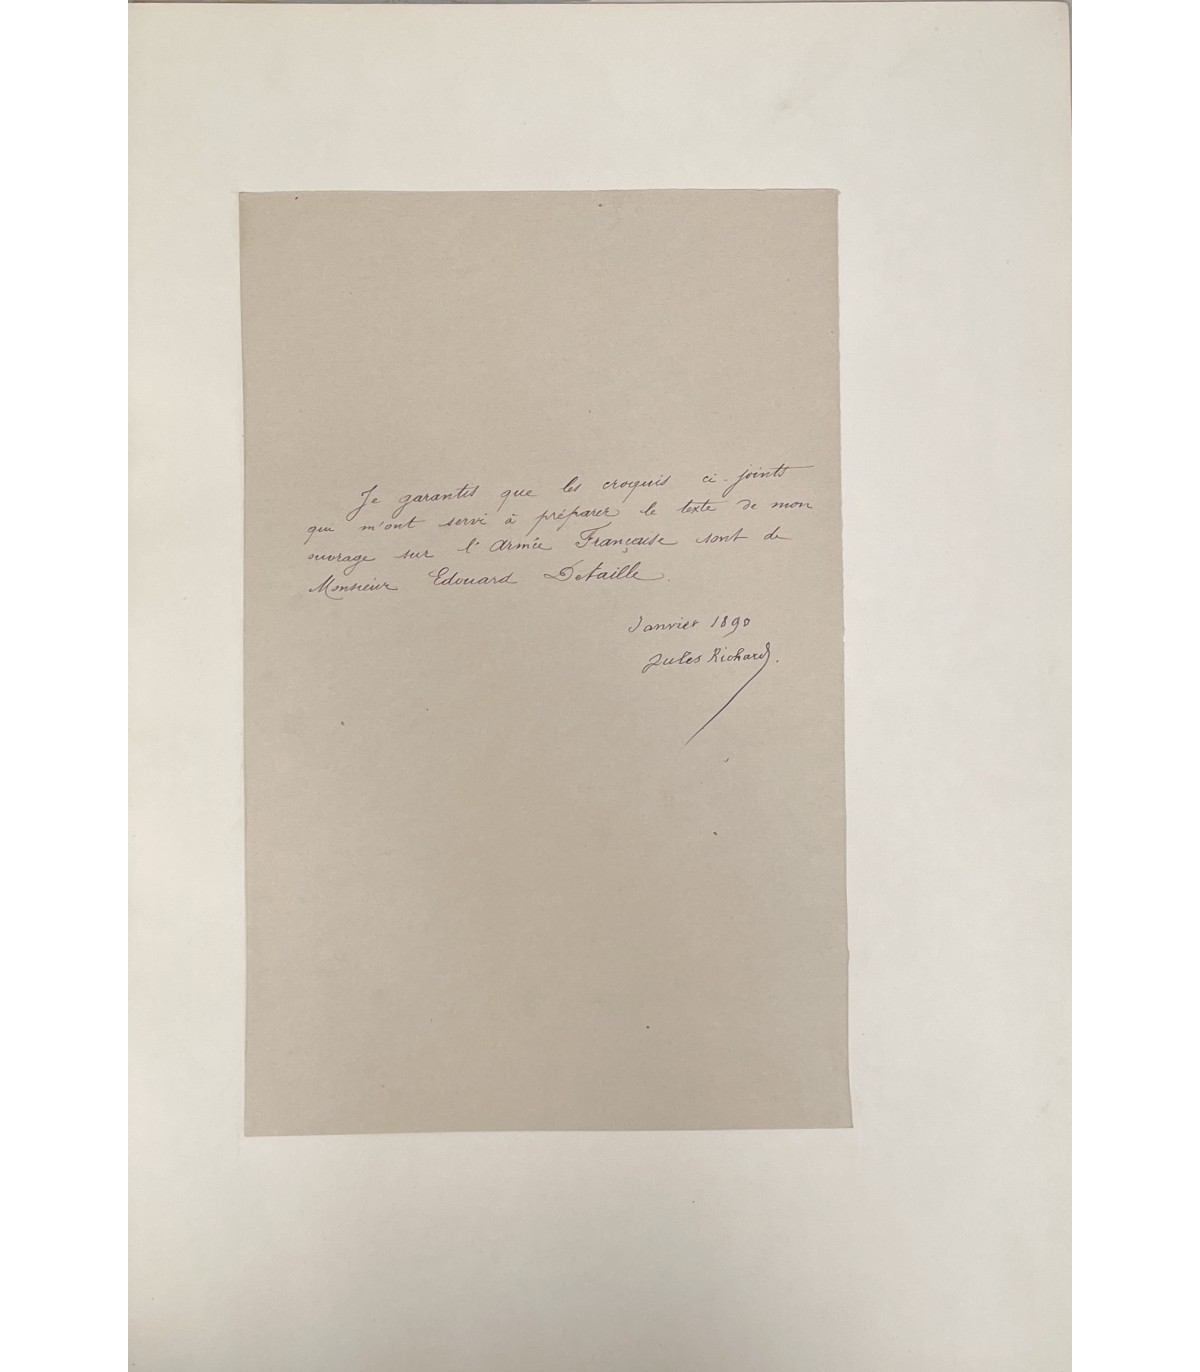 Je garantis que les croquis ci-joints
qui m'ont servi à préparer le texte de mon
ouvrage sur l'Armée Française sont de
Monsieur Edouard Detaille.
Janvier 1890
Jules Richard.